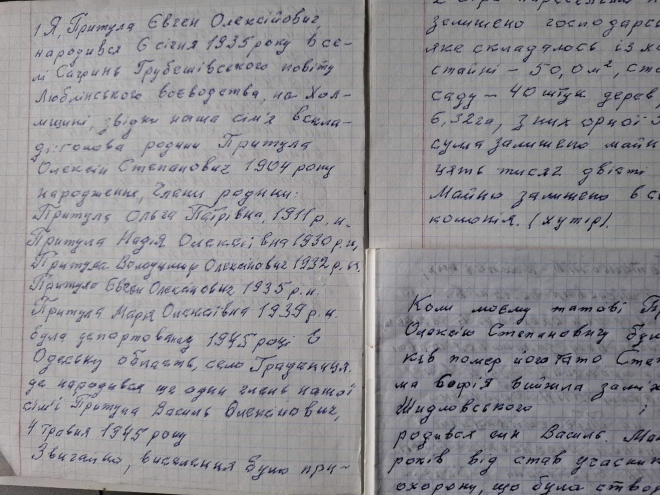 1. Я, Притула Євген Олексійович,
народився 6 січня 1935 року в се-
лі Сагринь Грубешівського повіту
Люблінського воєводства, на Хол-
мщині, звідки наша сім'я вскла-
ді: голова родини Притула
Олексій Степанович 1904 року
народження, члени родини:
Притула Ольга 1911 р. н.
Притула Надія Олексіївна 1930 р. н,
Притула Володимир Олексійович 1932 р. н.
Притула Євген Олексійович 1935 р. н.
Притула Марія Олексіївна 1939 р. н.
була депортована у 1945 році в
Одеську область, село Граданиця.
де народився ще один член нашої
сім'ї Притула Василь Олексійович,
4 травня 1945 року
Звичайно, виселення було при-
залишено господарс
яке складалось із х
стайні - 50,0 м², ст
саду - 40 штук дерев,
6,32 га, з них орної З
сума залишено майн
цять тисяч двісті
Майно залишено в с
колонія. (хутір).
Коли моєму татові П
Олексію Степановичу бу
ків помер його тато Сте
ма Софія вийшла замі
Шидловського і
родився син Василь. Ма
років від став учасник
охорони, що була створ